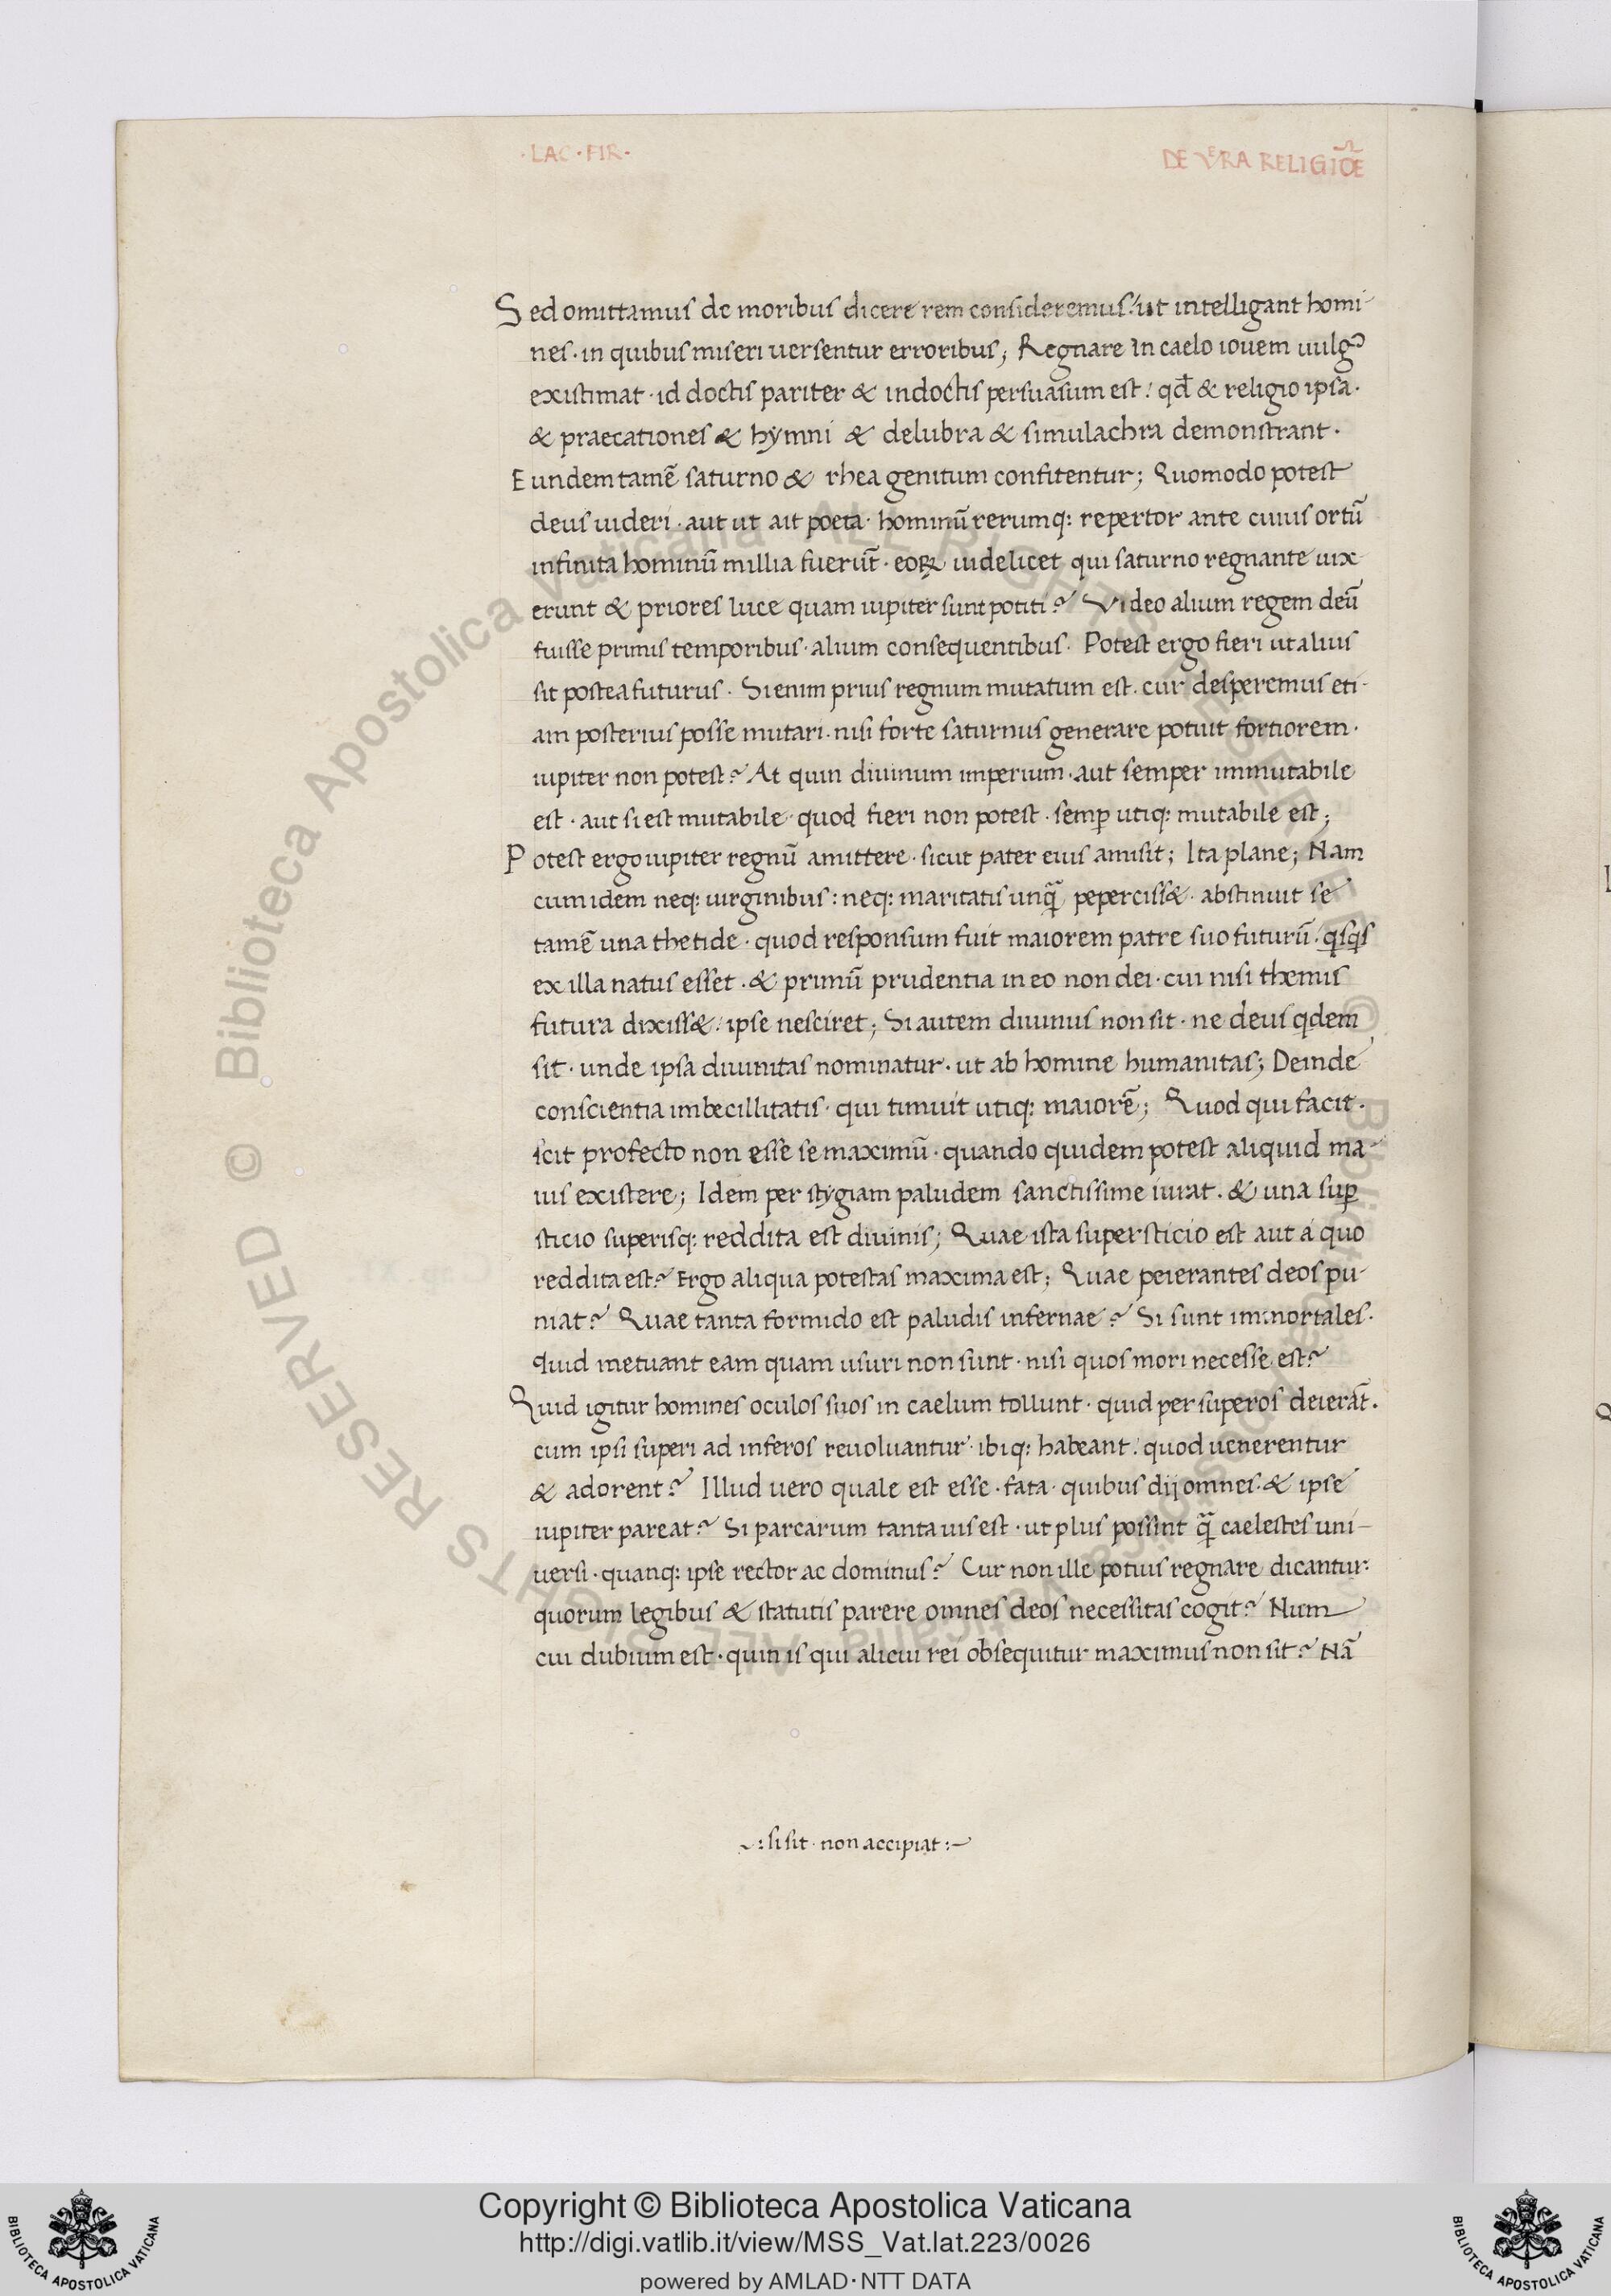 ·LAC·FIR·
DE VᵉRA RELIGIOĒ
Sed omittamus de moribus dicere rem consideremus: ut intelligant homi-
nes · in quibus miseri uersentur erroribus; Regnare in caelo iouem uulgꝰ
existimat · id doctis pariter & indoctis persuasum est: qđ & religio ipsa ·
& praecationes & hẏmni & delubra & simulachra demonstrant ·
Eundem tamē saturno & rhea genitum confitentur; Quomodo potest
deus uideri · aut ut ait poeta · hominū rerumq: repertor ante cuius ortū
infinita hominū millia fuerūt · eoꝝ uidelicet qui saturno regnante uix-
erunt & priores luce quam iupiter sunt potiti? Video alium regem deū
fuisse primis temporibus · alium consequentibus · Potest ergo fieri ut alius
sit postea futurus · Si enim prius regnum mutatum est · cur desperemus eti-
am posterius posse mutari · nisi forte saturnus generare potuit fortiorem ·
iupiter non potest? At quin diuinum imperium · aut semper immutabile
est · aut si est mutabile · quod fieri non potest · semꝑ utiq: mutabile est;
Potest ergo iupiter regnū amittere · sicut pater eius amisit; Ita plane; Nam
cum idem neq: uirginibus: neq: maritatis unq̄ peperciss& · abstinuit se
tamē una thetide · quod responsum fuit maiorem patre suo futurū: qsqs
ex illa natus esset · & primū prudentia in eo non dei · cui nisi themis
futura dixiss&: ipse nesciret; Si autem diuinus non sit · ne deus qdem
sit · unde ipsa diuinitas nominatur · ut ab homine humanitas; Deinde
conscientia imbecillitatis · qui timuit utiq: maiorē; Quod qui facit ·
scit profecto non esse se maximū · quando quidem potest aliquid ma-
ius existere; Idem per stẏgiam paludem sanctissime iurat · & una suꝑ
sticio superisq: reddita est diuinis; Quae ista supersticio est aut a quo
reddita est? Ergo aliqua potestas maxima est; Quae peierantes deos pu-
niat? Quae tanta formido est paludis infernae? Si sunt immortales ·
quid metuant eam quam usuri non sunt · nisi quos mori necesse est?
Quid igitur homines oculos suos in caelum tollunt · quid per superos deierāt ·
cum ipsi superi ad inferos reuoluantur · ibiq: habeant: quod uenerentur
& adorent? Illud uero quale est esse · fata · quibus dij omnes · & ipse
iupiter pareat? Si parcarum tanta uis est · ut plus possint q̄ caelestes uni-
uersi · quanq: ipse rector ac dominus? Cur non ille potius regnare dicantur:
quorum legibus & statutis parere omnes deos necessitas cogit? Num
cui dubium est · quin is qui alicui rei obsequitur maximus non sit? Nā
:si sit · non accipiat:
© Biblioteca Apostolica Vaticana ALL RIGHTS RESERVED
© Biblioteca Apostolica Vaticana ALL RIGHTS RESERVED
Copyright © Biblioteca Apostolica Vaticana
http://digi.vatlib.it/view/MSS_Vat.lat.223/0026
powered by AMLAD·NTT DATA
BIBLIOTECA APOSTOLICA VATICANA
BIBLIOTECA APOSTOLICA VATICANA